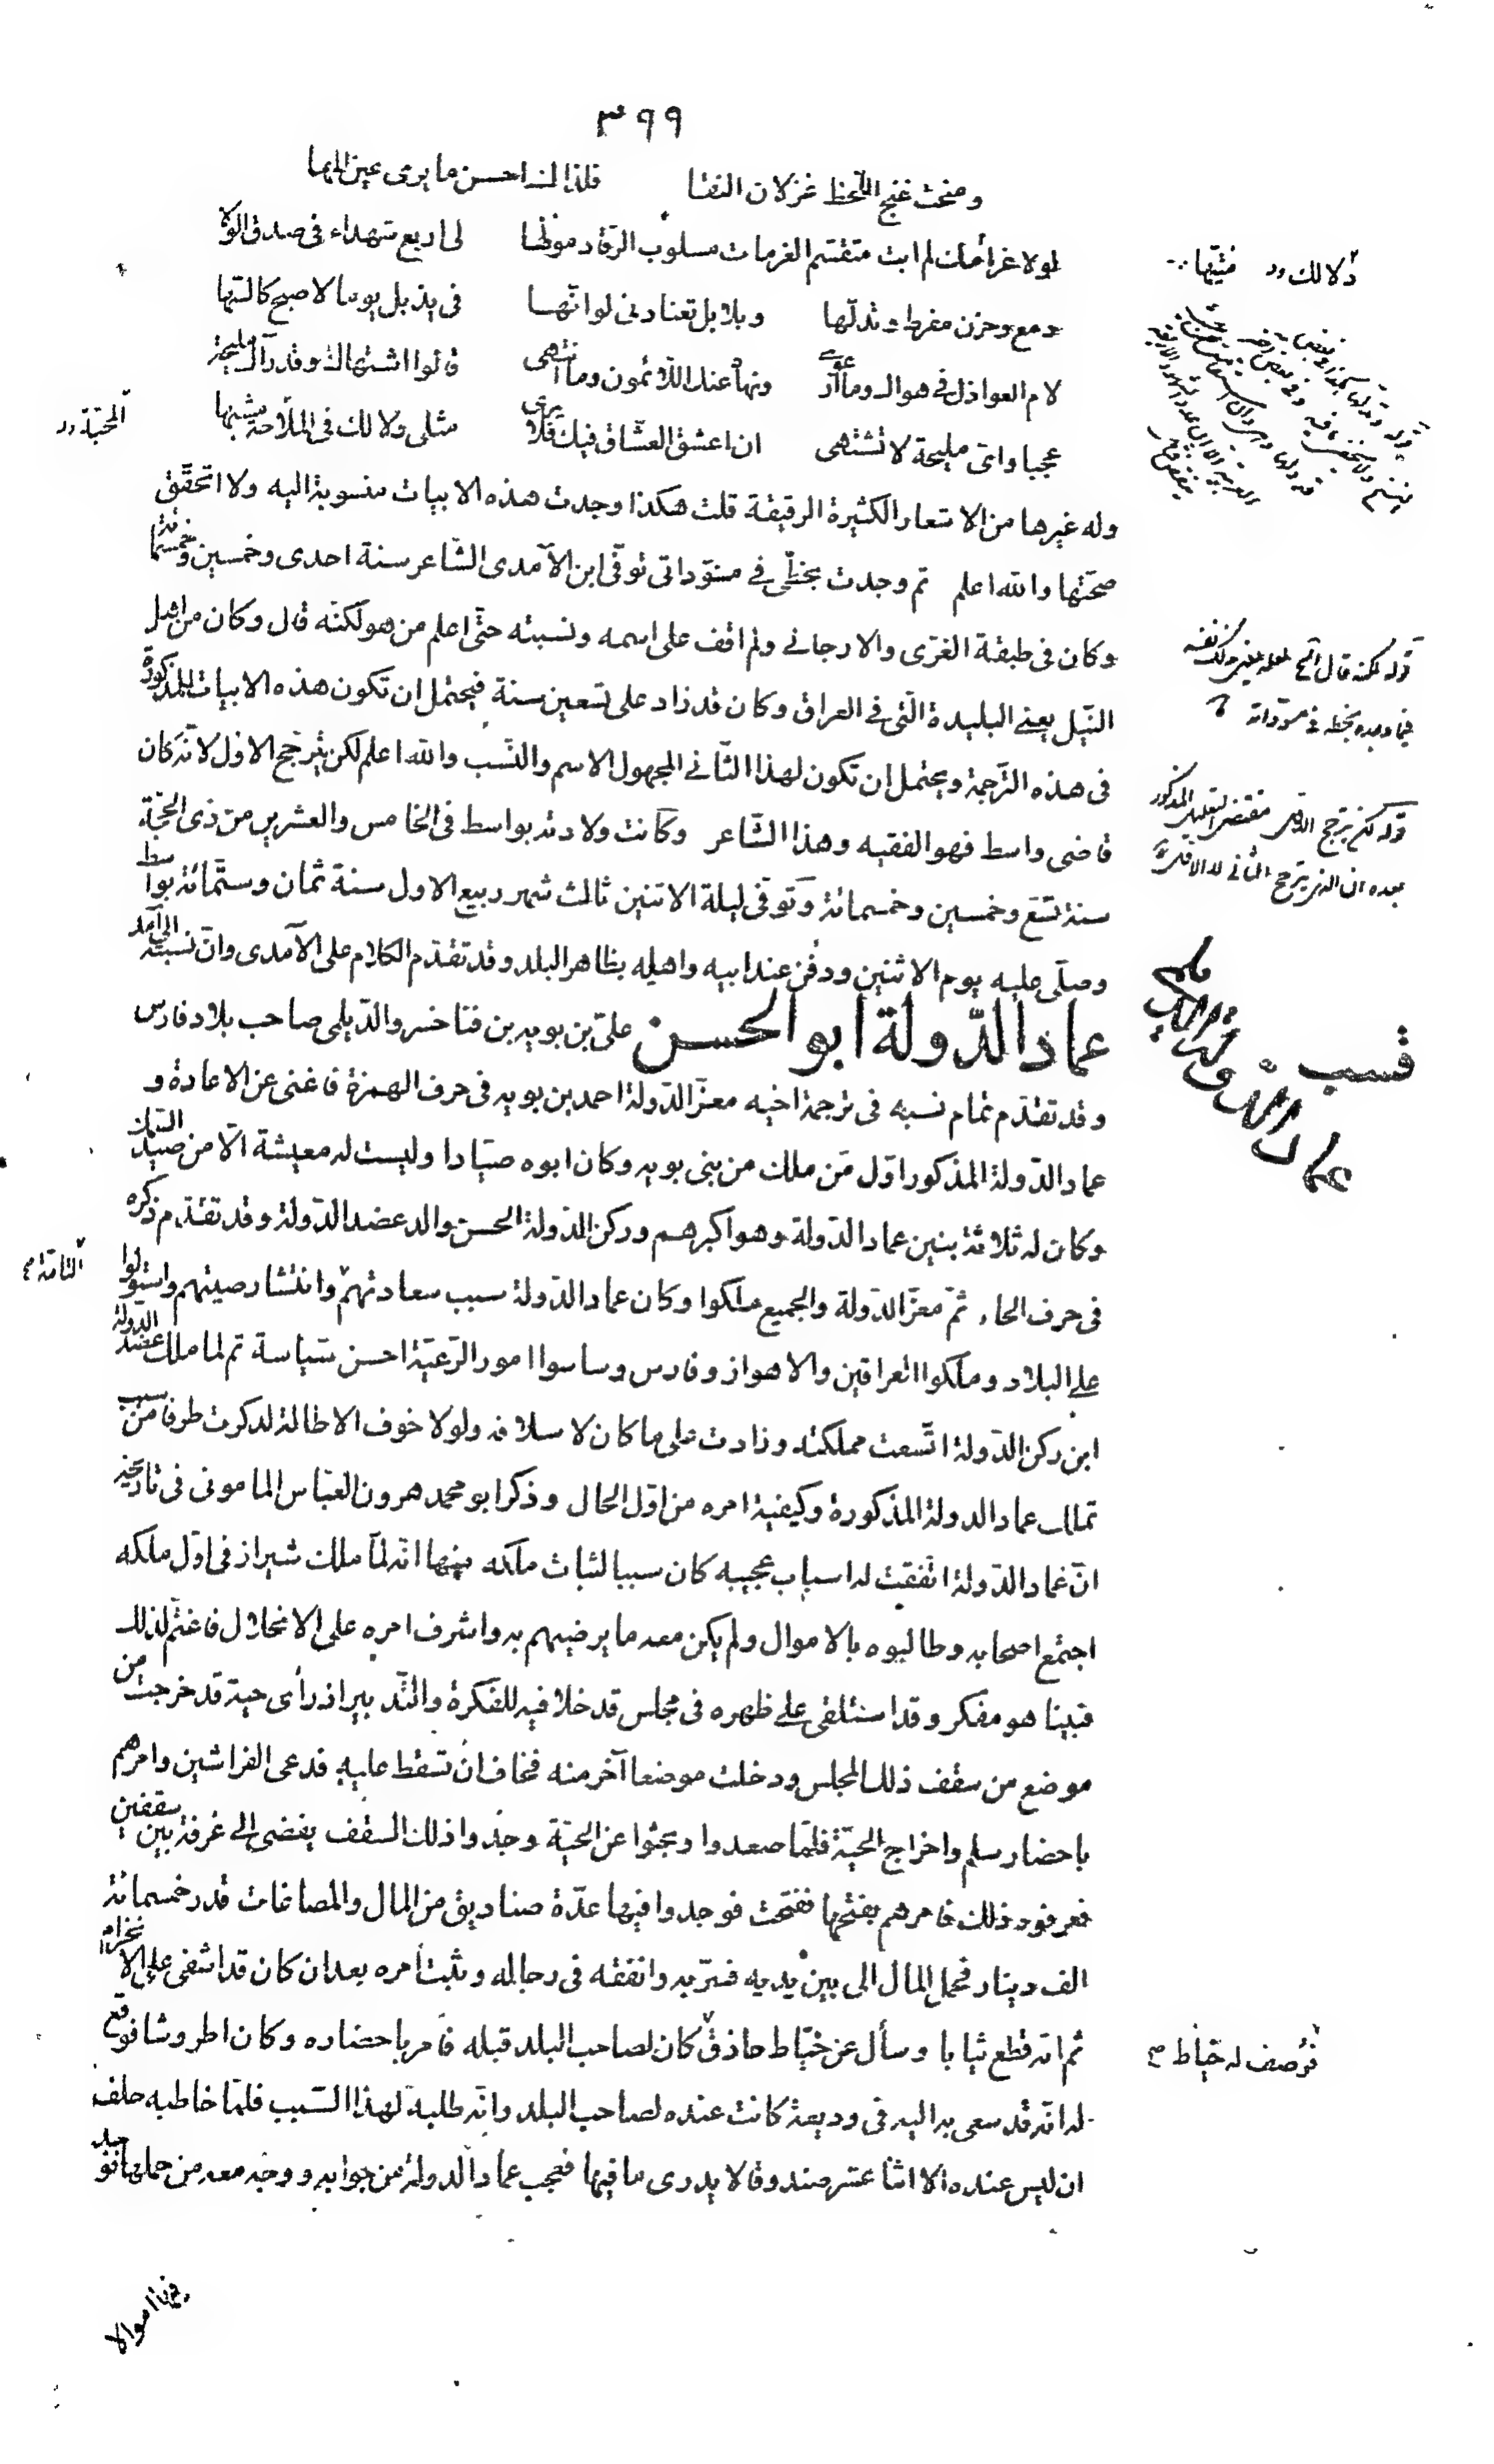 ٣٩٩
ومنحت غنج اللحظ غزلان النقا فلذاك احسن ما يرى عين المها
لولا غرامك لم ابت متقسم الغرمات مسلوب الرقاد مولها
لى اربع شهداء فى صدق الولا
دمع وحزن مفرط وتدلها وبلابل تعتادنى لو انها
فى يذبل يوما لاصبح كالسها
لام العواذل فى هواك وما ارعوى ونهاه عنك اللائمون وما انتهى
قالوا اشتهاك وقد رآك مليحة
عجبا واى مليحة لا تشتهى ان اعشق العشاق فيك فلا يرى
مثلى ولا لك فى الملاحة مشبها
وله غيرها من الاشعار الكثيرة الرقيقة قلت هكذا وجدت هذه الابيات منسوبة اليه ولا اتحقق
صحتها والله اعلم ثم وجدت بخطى فى مسوداتى توفى ابن الآمدى الشاعر سنة احدى وخمسين وخمسمائة
وكان فى طبقة الغزى والارجانى ولم اقف على اسمه ونسبته حتى اعلم من هو لكنه قال وكان من اهل
النيل يعنى البليدة التى فى العراق وكان قد زاد على تسعين سنة فيحتمل ان تكون هذه الابيات للمذكور
فى هذه الترجمة ويحتمل ان تكون لهذا الثانى المجهول الاسم والنسب والله اعلم لكن يترجح الاول لانه كان
قاضى واسط فهو الفقيه وهذا الشاعر وكانت ولادته بواسط فى الخامس والعشرين من ذى الحجة
سنة تسع وخمسين وخمسمائة وتوفى ليلة الاثنين ثالث شهر ربيع الاول سنة ثمان وستمائة بواسط
وصلى عليه يوم الاثنين ودفن عند ابيه واهله بظاهر البلد وقد تقدم الكلام على الآمدى وان نسبته الى آمد
عماد الدولة ابو الحسن على بن بويه بن فناخسرو الديلمى صاحب بلاد فارس
وقد تقدم تمام نسبه فى ترجمة اخيه معز الدولة احمد بن بويه فى حرف الهمزة فاغنى عن الاعادة و
عماد الدولة المذكور اول من ملك من بنى بويه وكان ابوه صيادا وليست له معيشة الا من صيد السمك
وكان له ثلاثة بنين عماد الدولة وهو اكبرهم وركن الدولة الحسن والد عضد الدولة وقد تقدم ذكره
فى حرف الحاء ثم معز الدولة والجميع ملكوا وكان عماد الدولة سبب سعادتهم وانتشار صيتهم واستولوا
على البلاد وملكوا العراقين والاهواز وفارس وساسوا امور الرعية احسن سياسة ثم لما ملك عضد الدولة
ابن ركن الدولة اتسعت مملكته وزادت على ما كان لاسلافه ولولا خوف الاطالة لذكرت طرفا من سبب
تملك عماد الدولة المذكورة وكيفية امره من اول الحال وذكر ابو محمد هرون العباس المامونى فى تاريخه
ان عماد الدولة اتفقت له اسباب عجيبه كان سببا لثبات ملكه منها انه لما ملك شيراز فى اول ملكه
اجتمع اصحابه وطالبوه بالاموال ولم يكن معه ما يرضيهم به واشرف امره على الانحلال فاغتم لذلك
فبينا هو مفكر وقد استلقى على ظهره فى مجلس قد خلا فيه للفكرة والتدبير اذ رأى حية قد خرجت من
موضع من سقف ذلك المجلس ودخلت موضعا آخر منه فخاف ان تسقط عليه فدعى الفراشين وامرهم
باحضار سلم واخراج الحية فلما صعدوا وبحثوا عن الحية وجدوا ذلك السقف يفضى الى غرفة بين سقفين
فعرفوه ذلك فامرهم بفتحها ففتحت فوجدوا فيها عدة صناديق من المال والمصاغات قدر خمسمائة
الف دينار فحمل المال الى بين يديه فسر به وانفقه فى رجاله وثبت امره بعد ان كان قد اشفى على الانخرام
ثم انه قطع ثيابا وسأل عن خياط حاذق كان لصاحب البلد قبله فامر باحضاره وكان اطروشا فوقع
له انه قد سعى به اليه فى وديعة كانت عنده لصاحب البلد وانه طلبه لهذا السبب فلما خاطبه حلف
ان ليس عنده الا اثنا عشر صندوقا لا يدرى ما فيها فعجب عماد الدولة من جوابه ووجه معه من حملها فوجد
فيها اموالا
دلالك
فتيها
المحبة
قوله لكنه قال الخ
فيما وجده بخطه فى مسوداته
قوله لكن يترجح الاول مقتضى التعليل المذكور
بعده ان الذى يترجح الثانى لا الاول
قسب
عماد الدولة الديلمى
التامة
فوصف له خياط صح